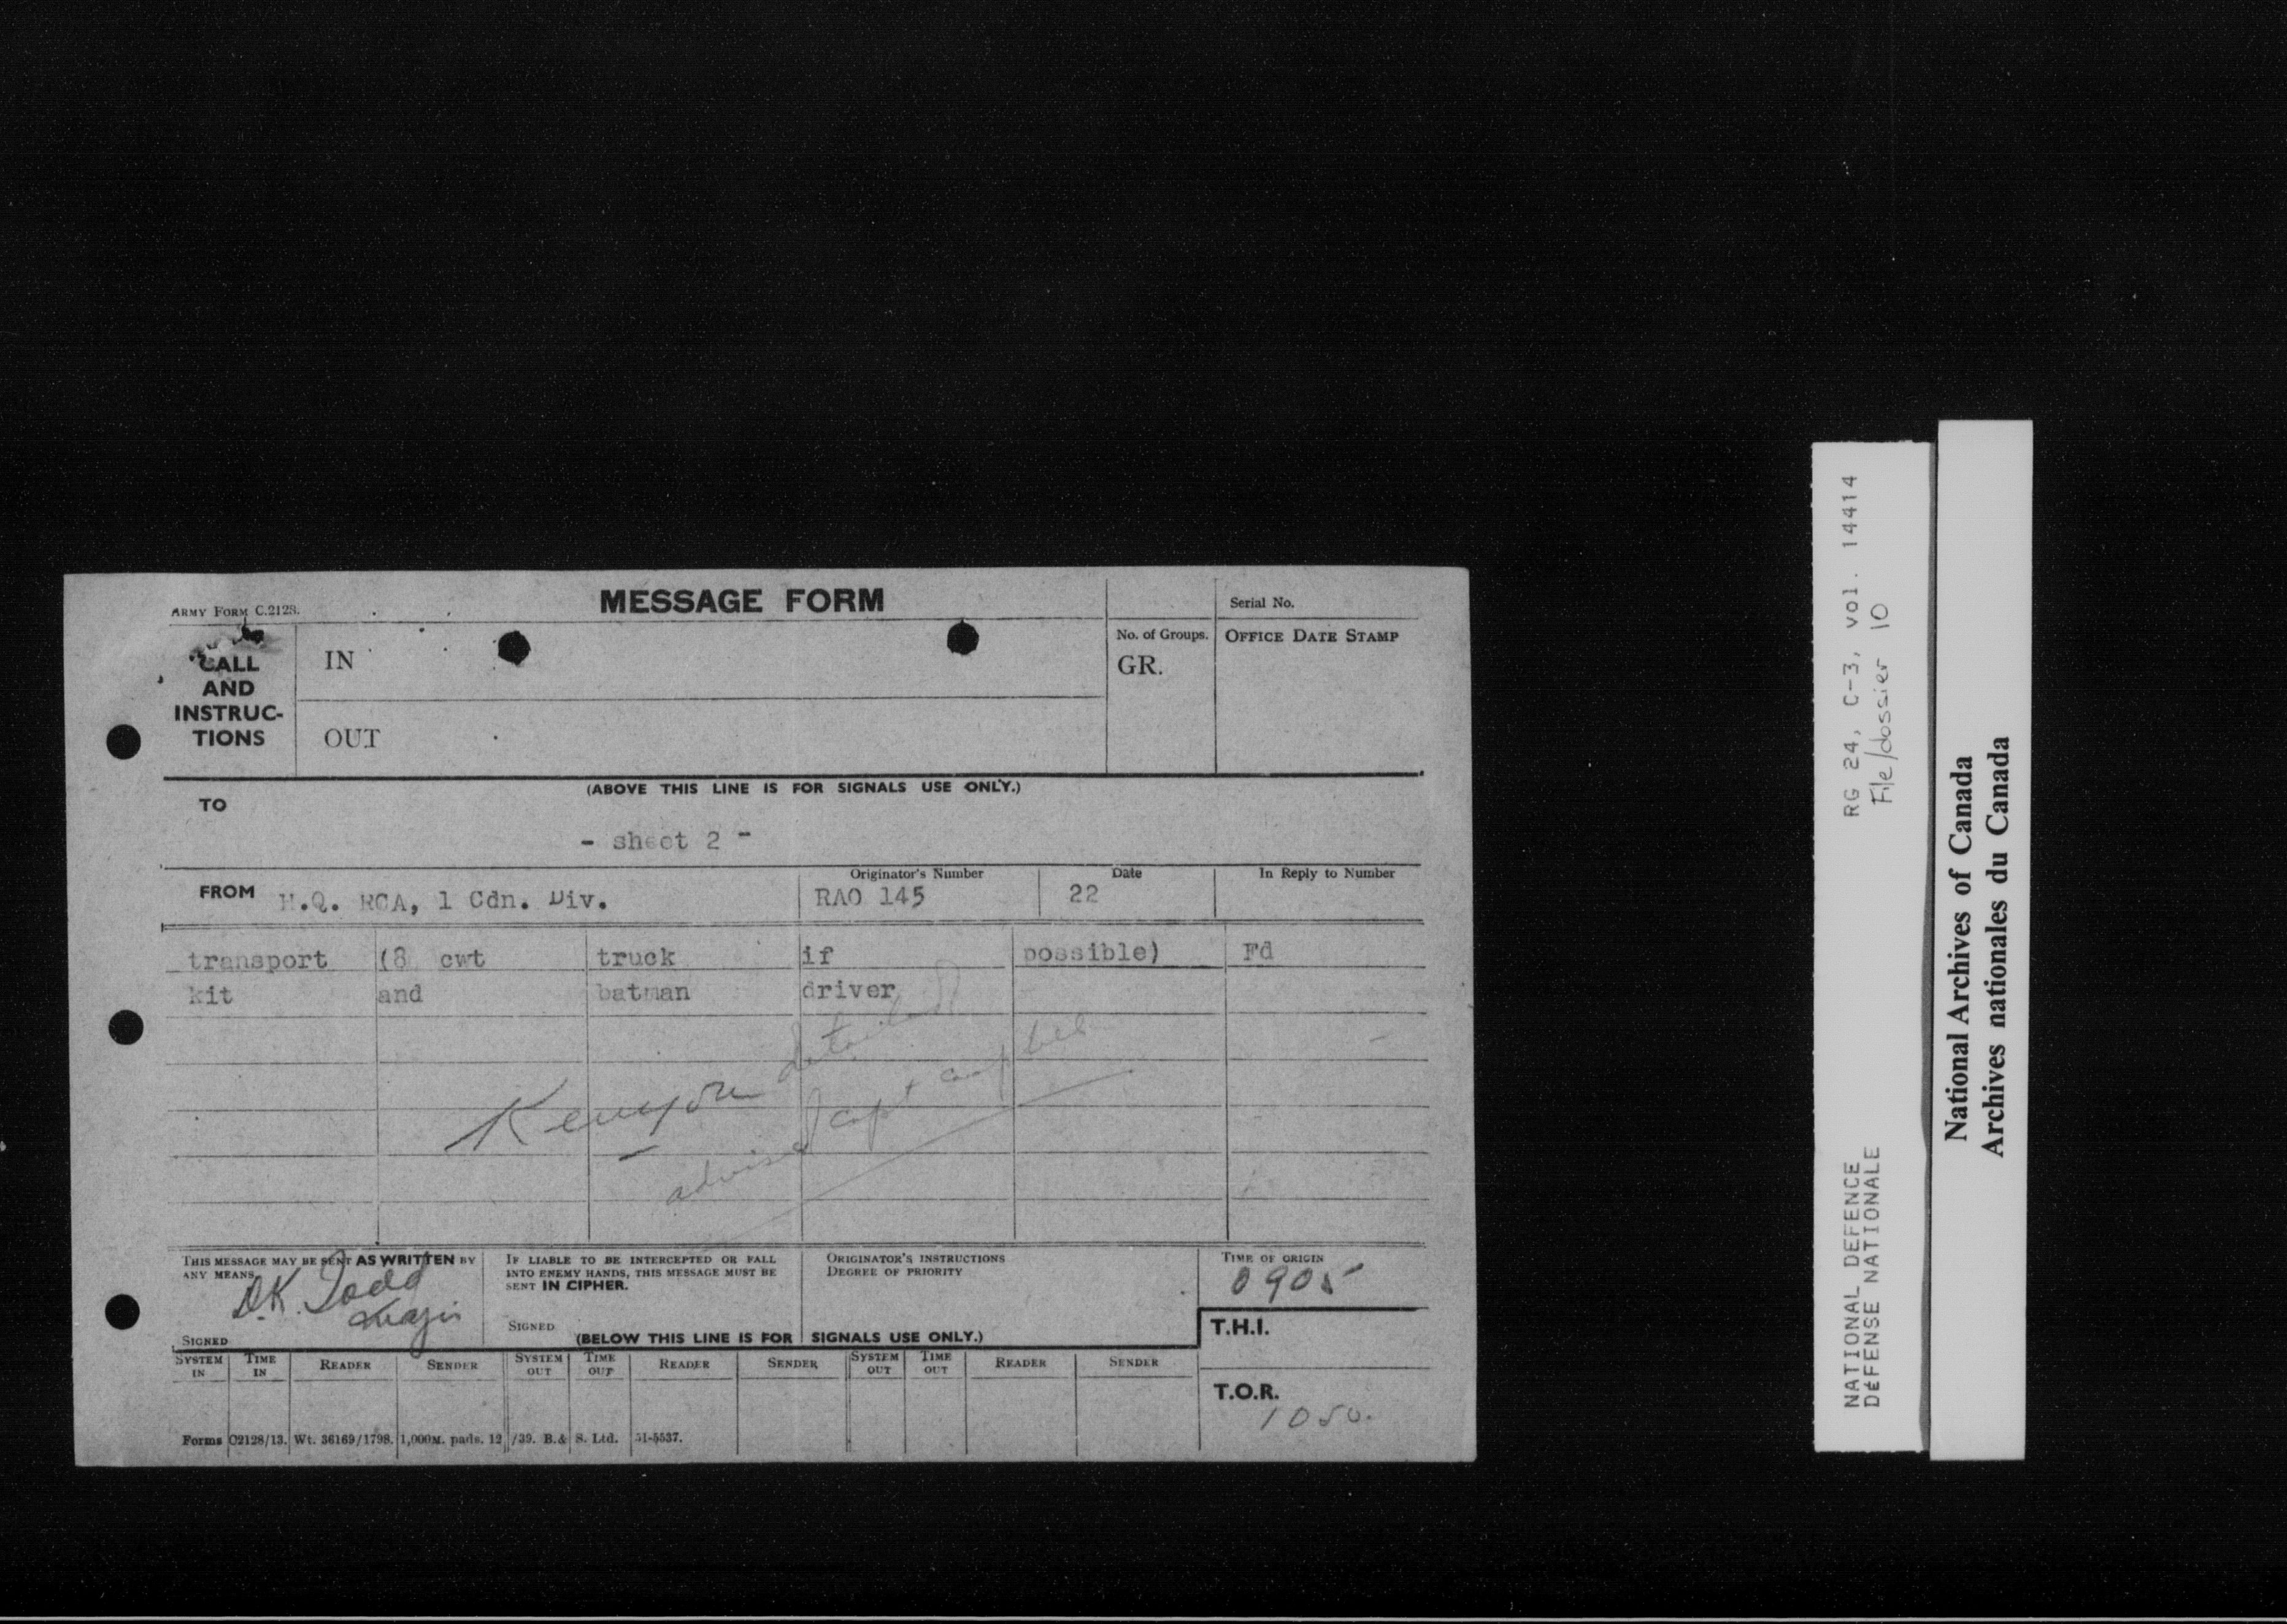 ARMY FORM C.2128.
MESSAGE FORM
Serial No.
CALL
AND
INSTRUC-
TIONS
IN
OUT
No. of Groups.
GR.
OFFICE DATE STAMP
(ABOVE THIS LINE IS FOR SIGNALS USE ONLY.)
TO
- sheet 2 -
FROM H.Q. RCA, 1 Cdn. Div.
Originator's Number
RAO 145
Date
22
In Reply to Number
transport (8 cwt truck if possible) Fd
kit and batman driver
Kenyon detailed
advised Capt Campbell
THIS MESSAGE MAY BE SENT AS WRITTEN BY
ANY MEANS
D.K. Todd
Major
SIGNED
IF LIABLE TO BE INTERCEPTED OR FALL
INTO ENEMY HANDS, THIS MESSAGE MUST BE
SENT IN CIPHER.
SIGNED
ORIGINATOR'S INSTRUCTIONS
DEGREE OF PRIORITY
TIME OF ORIGIN
0905
(BELOW THIS LINE IS FOR SIGNALS USE ONLY.)
T.H.I.
SYSTEM IN TIME IN READER SENDER SYSTEM OUT TIME OUT READER SENDER SYSTEM OUT TIME OUT READER SENDER
T.O.R.
1050.
Forms C2128/13. Wt. 36169/1798. 1,000M. pads. 12/39. B.& S. Ltd. 51-5537.
RG 24, C-3, vol. 14414
File/dossier 10
NATIONAL DEFENCE
DÉFENSE NATIONALE
National Archives of Canada
Archives nationales du Canada